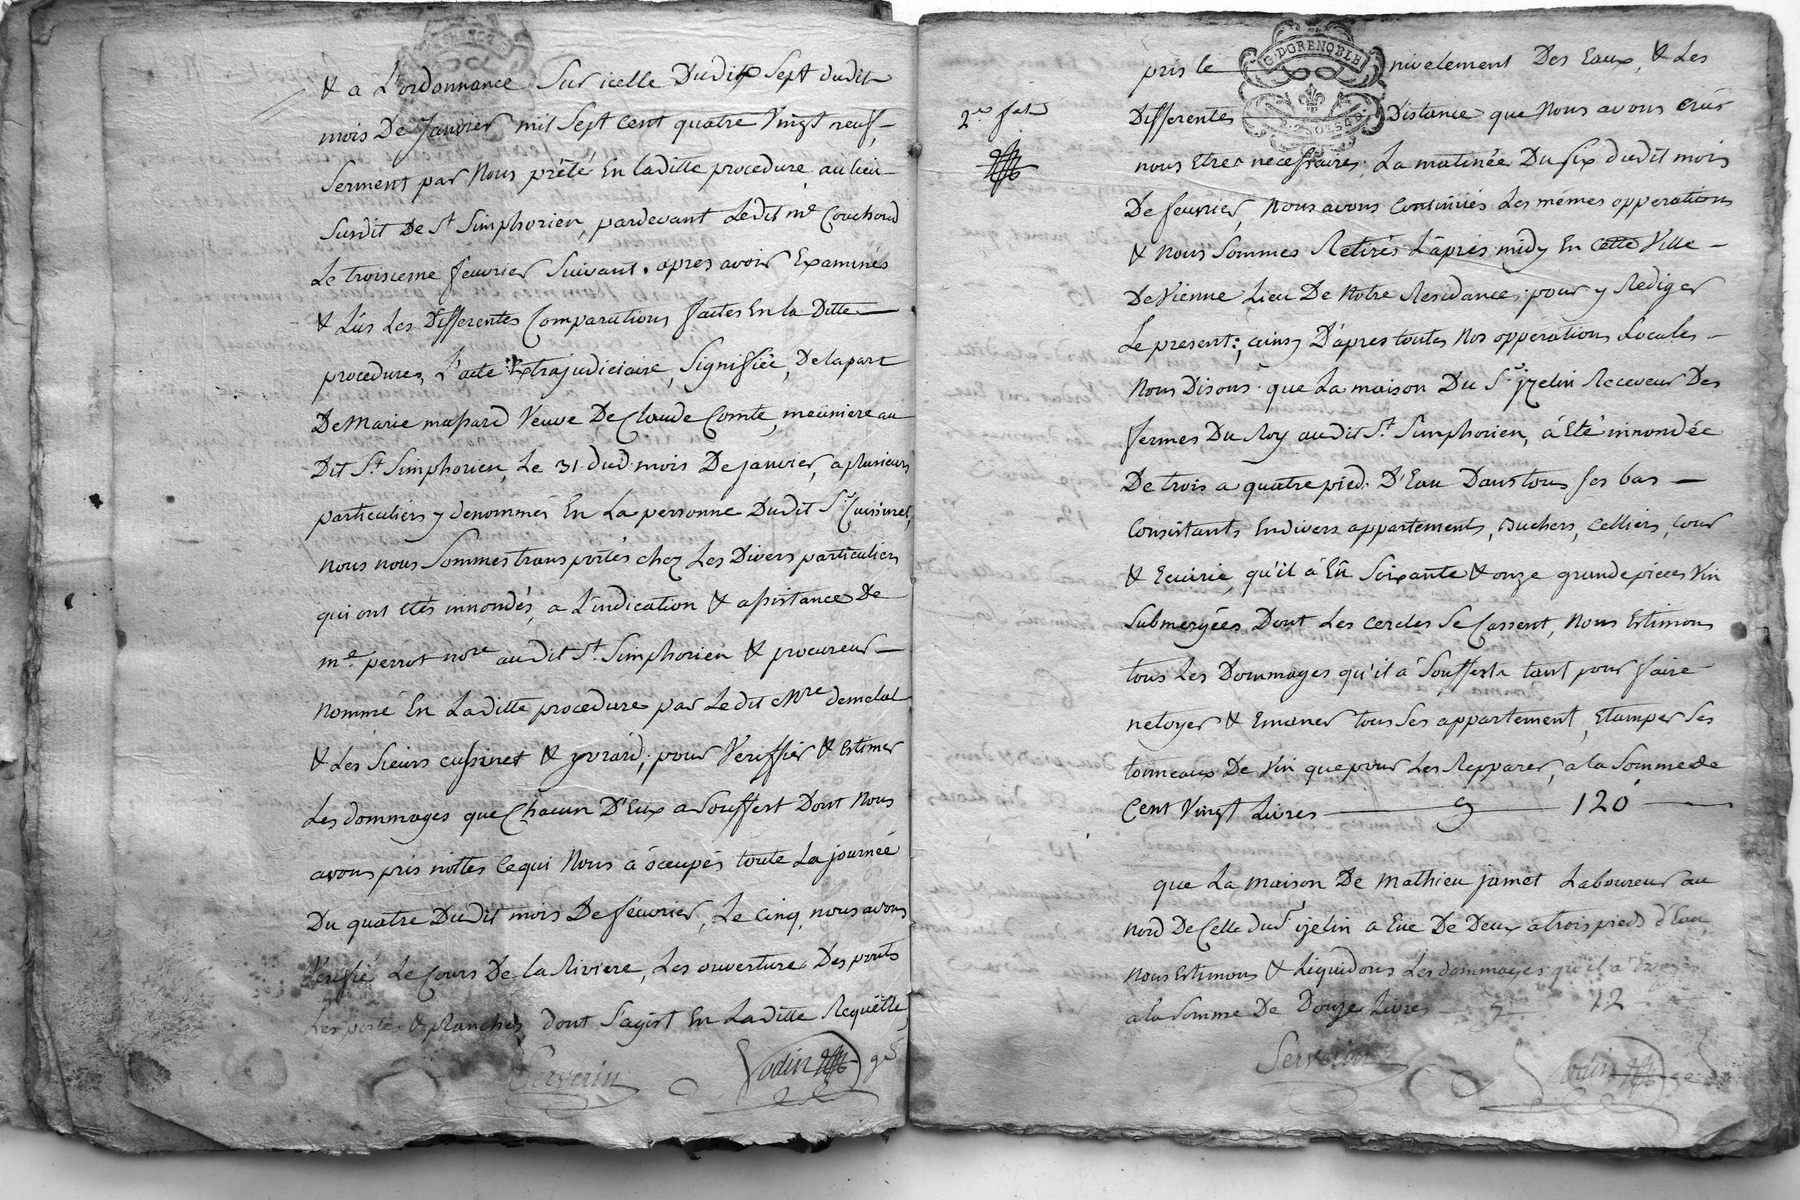 & a L'ordonnance Sur icelle Dudit Sept dudit
mois De Janvier mil Sept cent quatre Vingt neuf,
Serment par Nous prêté En laditte procedure au lieu
Susdit De St. Simphorien, pardevant Ledit me. Couchoud
Le troisieme fevrier Suivant. apres avoir Examinés
& Lûs Les Differentes Comparutions faites En la Ditte
procedures, L'acte Extrajudiciaire, Signiffiée, De la part
De Marie massard Veuve De Claude Comte, meüniere au
Dit St. Simphorien, Le 31. dud. mois De janvier, a plusieurs
particuliers y denommés En La personne Dudit Sr. Cuissinet,
nous nous Sommes transportés chez Les Divers particuliers
qui ont étés innondés, a L'indication & assistance De
me. perrot nore audit St. Simphorien & procureur
nommé En Laditte procedure par Ledit Mre demelat
& Les Sieurs cussinet & gvrard; pour Veriffier & Estimer
Les dommages que Chacun D'Eux a Souffert Dont Nous
avons pris nottes Ce qui Nous à ôccupés toute La journée
Du quatre Dudit mois De février, Le Cinq, nous avons
Verifié Le Cours De la Riviere, Les ouvertures Des ponts
Les portes & planches dont S'agist En Laditte Requêtte,
Serverin Vodin ge
G. D GRENOBLE
pris le nivelement Des Eaux, & Les
2e. fet
Differentes Distance que Nous avons crûs
nous Etre necessaires; La matinée Du six dudit mois
De fevrier, Nous avons Continüés Les mêmes opperations
& Nous Sommes Retirés L'aprés midy En cette Ville
De Vienne, Lieu De Notre Residance; pour y Rediger
Le present; ainsy D'apres toutes Nos opperations Locales
Nous Disons que La maison Du Sr. jzelin Receveur Des
fermes Du Roy audit St. Simphorien, â Eté innondée
De trois a quatre pied. D'Eau Dans tous ses bas
Consistants En divers appartements, Buchers, Celliers, Cour
& Ecurie, qu'il â Eû Soixante & onze grande pieces Vin
Submergées Dont Les cercles Se Cassent, Nous Estimons
tous Les Dommages qu'il â Souffert tant pour faire
netoyer & Emaner tous Ses appartement, Etamper Ses
tonneaux De Vin que pour Les Repparer, a la Somme de
Cent Vingt Livres 120
que La maison De Mathieu jamet Laboureur au
nord De Celle du Sr. ijelin a Eüe De Deux a trois pieds d'Eau,
Nous Estimons & Liquidons Les dommages qu'il a
a la Somme De Douze Livres 12
Serverin Vodin ge